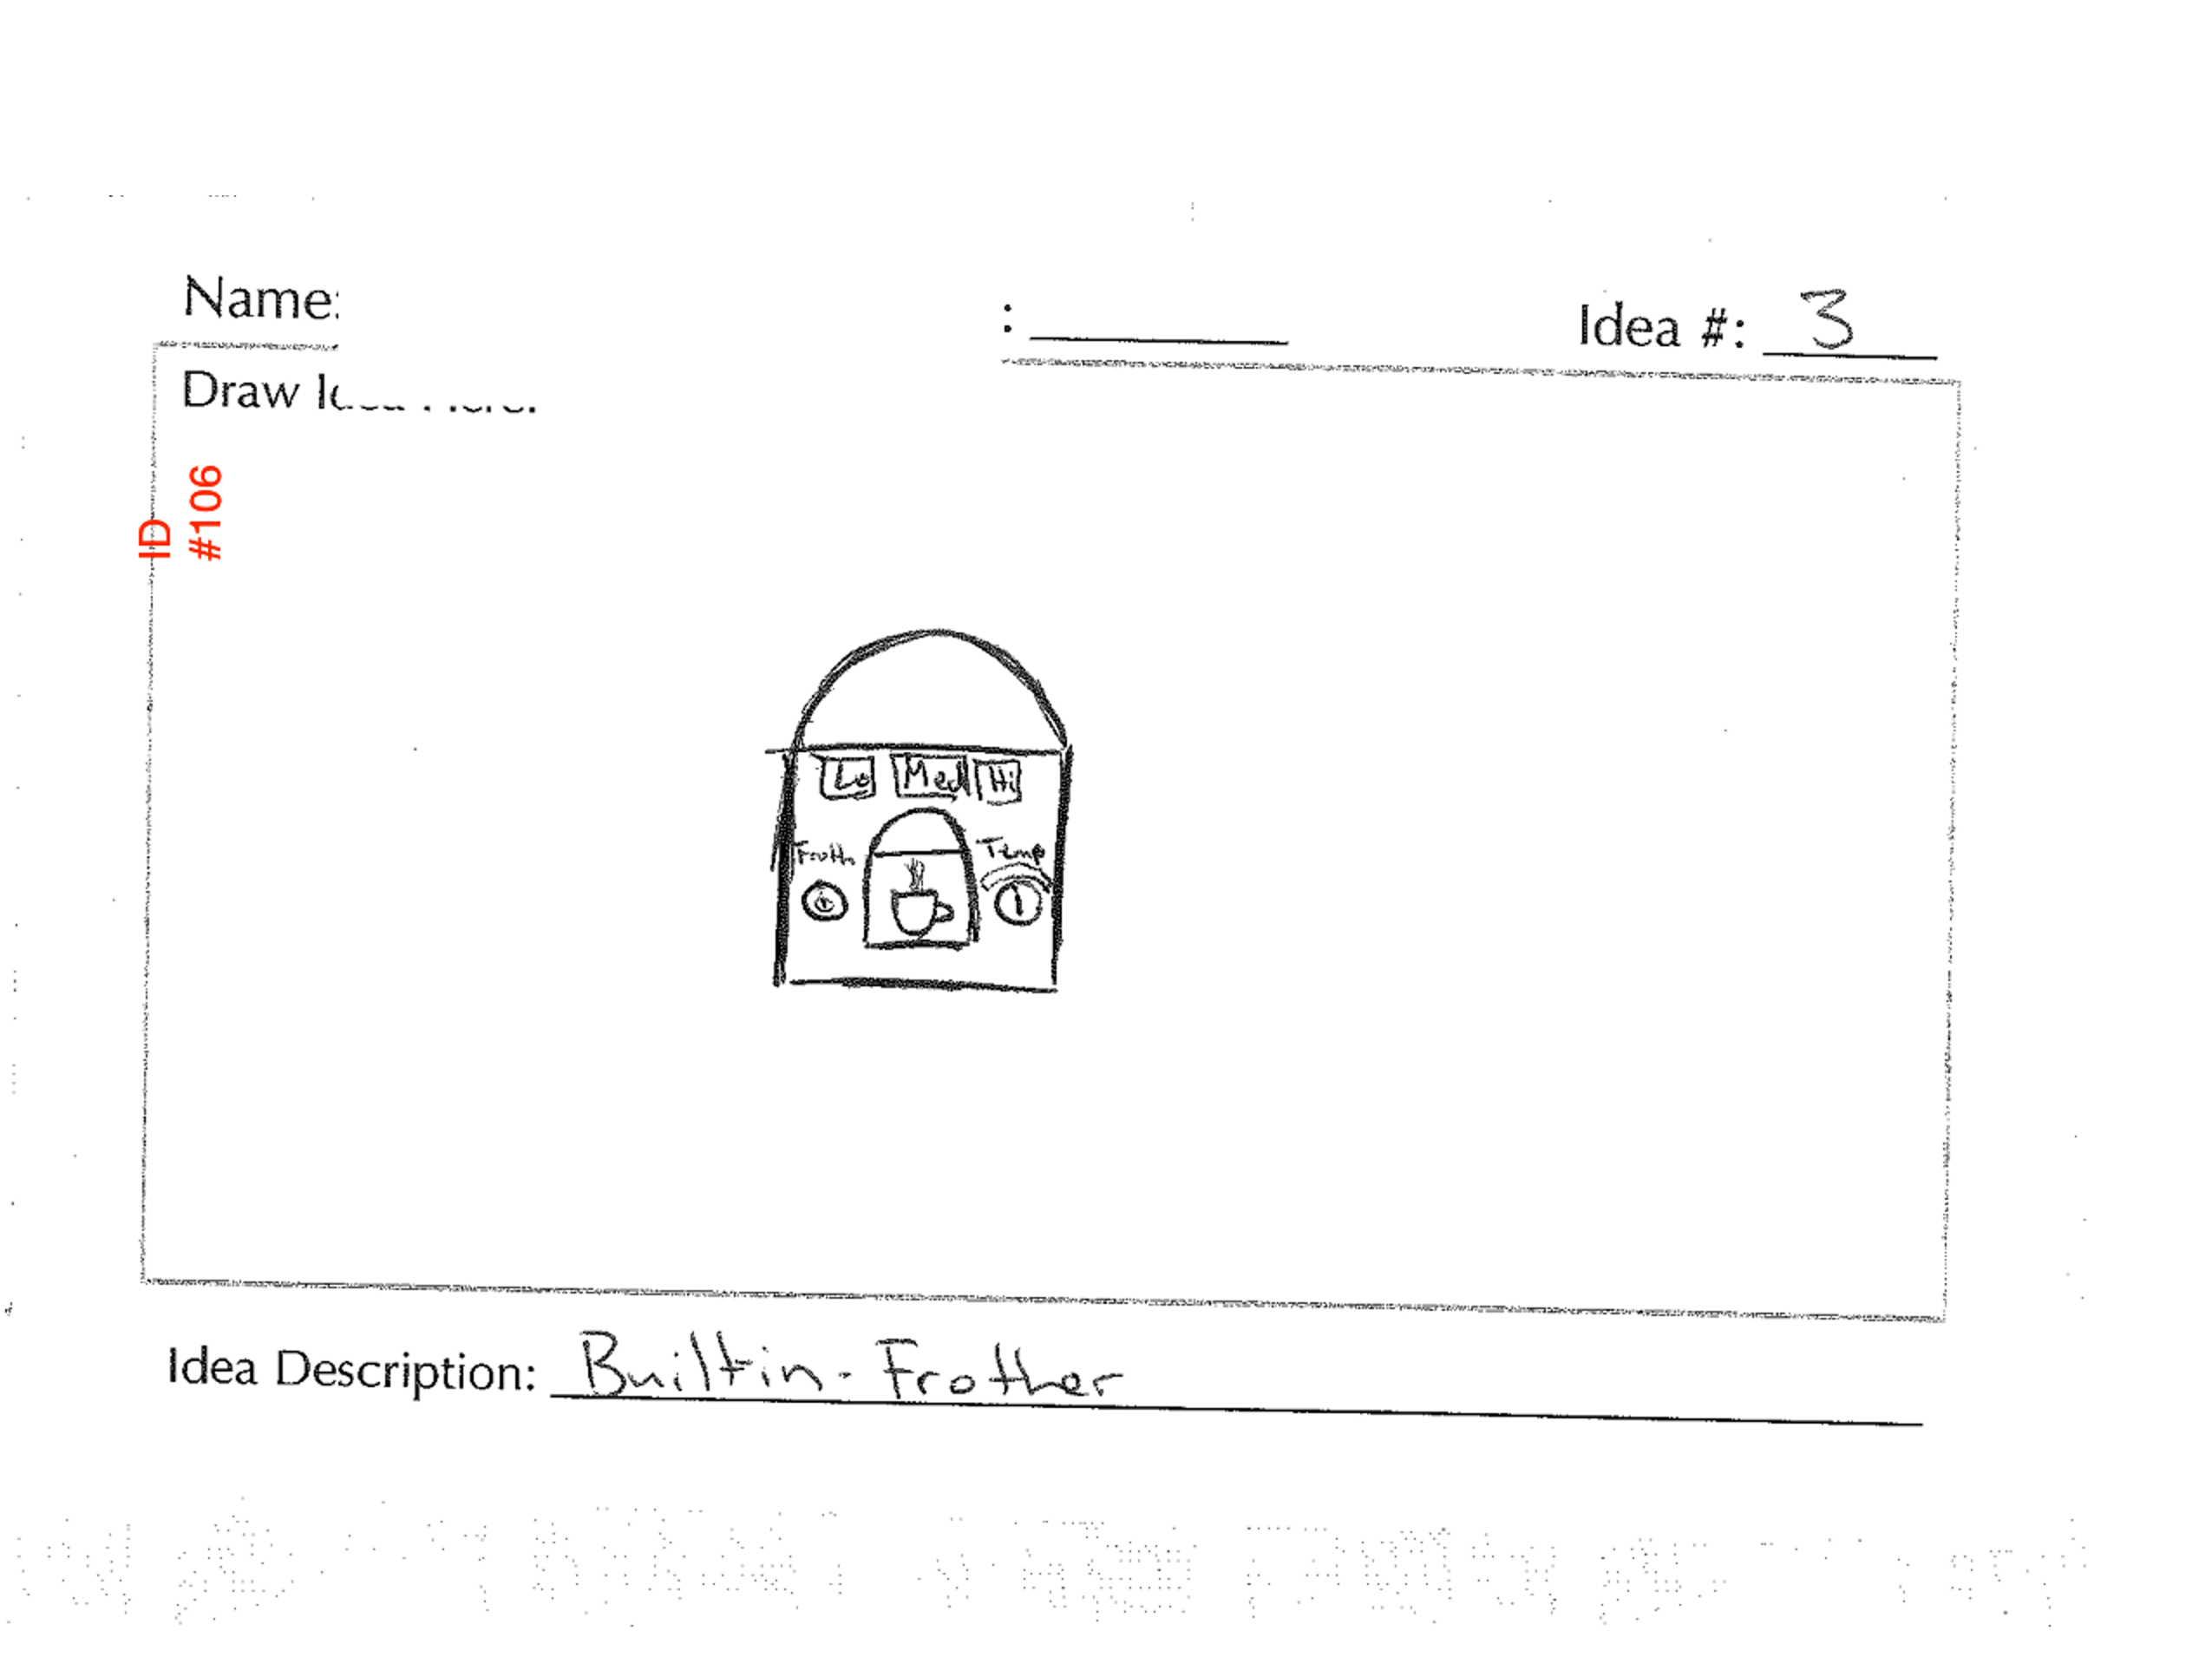 Name:
: Idea #: 3
Draw
ID
#106
Lo Med Hi
Froth Temp
Idea Description: Built-in-Frother